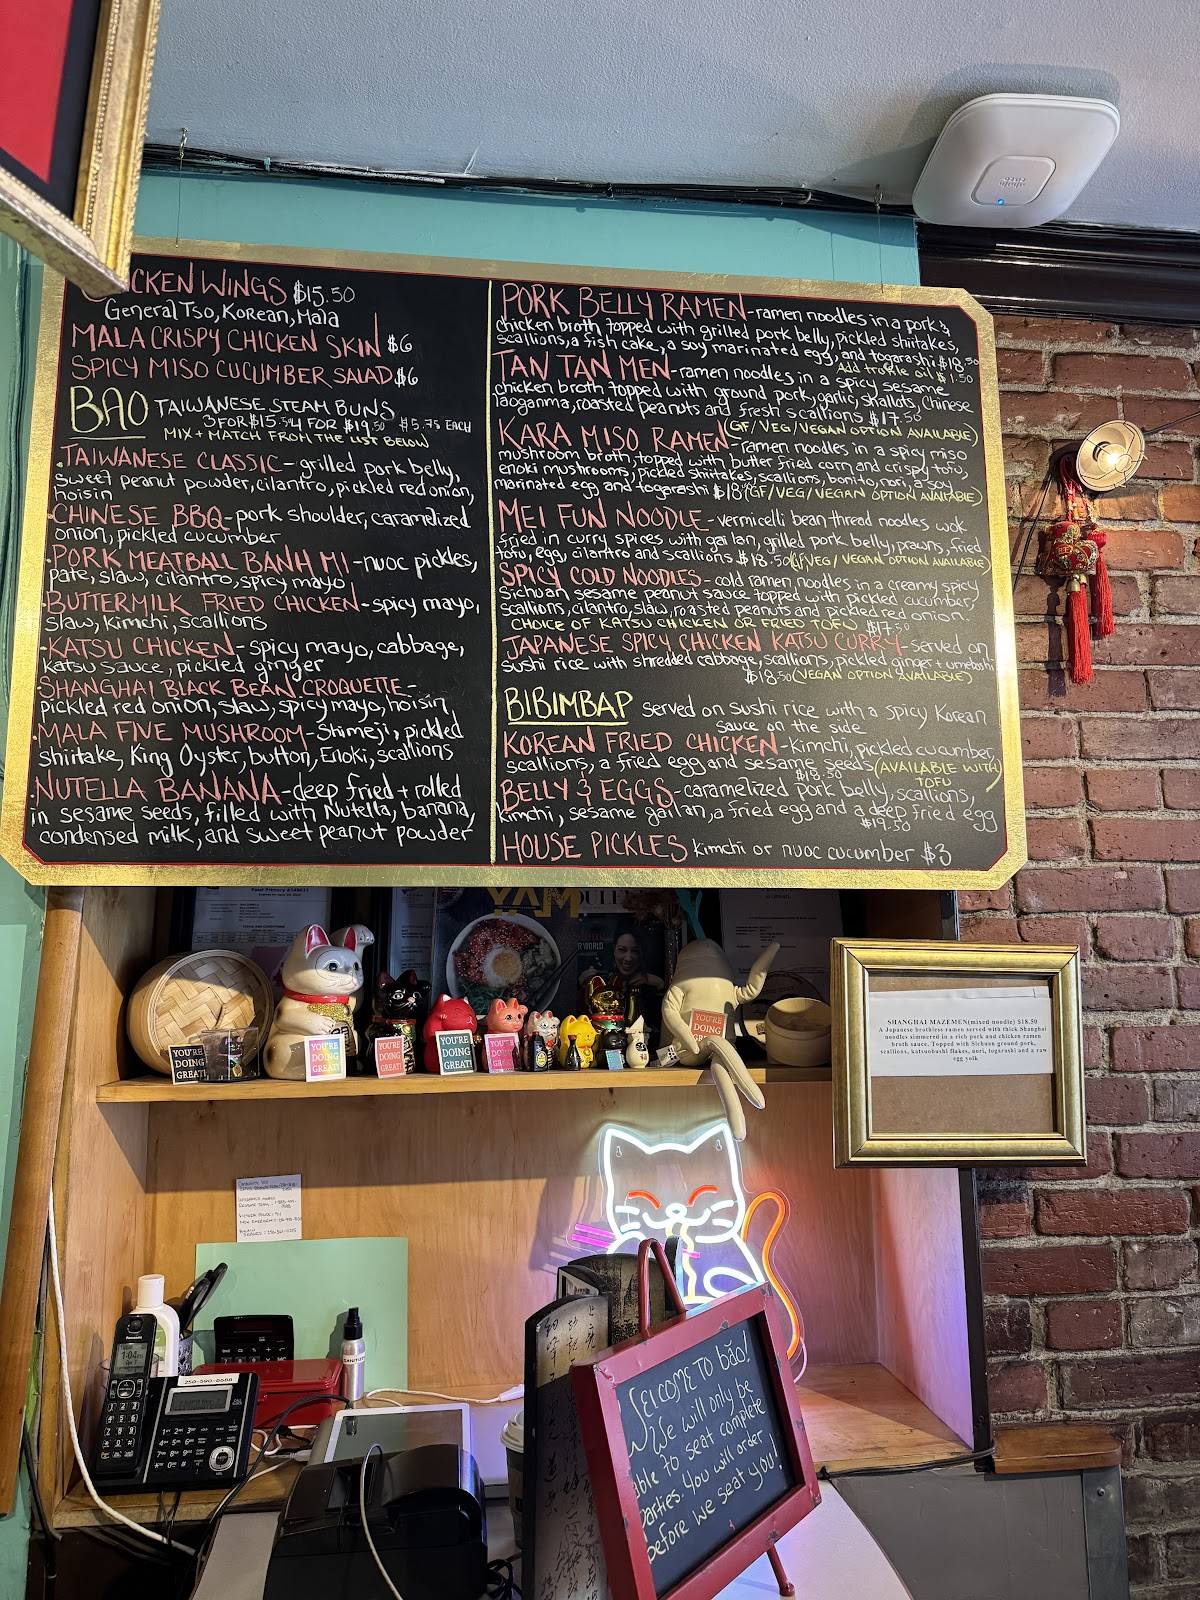 CKEN WINGS $15.50
General Tso, Korean, Mala
MALA CRISPY CHICKEN SKIN $6
SPICY MISO CUCUMBER SALAD $6
BAO TAIWANESE STEAM BUNS
3 FOR $15.54 4 FOR $19.50 $5.75 EACH
MIX + MATCH FROM THE LIST BELOW
·TAIWANESE CLASSIC-grilled pork belly,
sweet peanut powder, cilantro, pickled red onion,
hoisin
·CHINESE BBQ-pork shoulder, caramelized
onion, pickled cucumber
·PORK MEATBALL BANH MI-nuoc pickles,
pate, slaw, cilantro, spicy mayo
·BUTTERMILK FRIED CHICKEN-spicy mayo,
slaw, kimchi, scallions
·KATSU CHICKEN-spicy mayo, cabbage,
katsu sauce, pickled ginger
·SHANGHAI BLACK BEAN CROQUETTE-
pickled red onion, slaw, spicy mayo, hoisin
·MALA FIVE MUSHROOM-Shimeji, pickled
shiitake, King Oyster, button, Enoki, scallions
·NUTELLA BANANA-deep fried + rolled
in sesame seeds, filled with Nutella, banana,
condensed milk, and sweet peanut powder
PORK BELLY RAMEN-ramen noodles in a pork &
chicken broth, topped with grilled pork belly, pickled shiitakes,
scallions, a fish cake, a soy marinated egg, and togarashi $18.50
Add truffle oil $1.50
TAN TAN MEN-ramen noodles in a spicy sesame
chicken broth topped with ground pork, garlic, shallots, Chinese
laoganma, roasted peanuts and fresh scallions $17.50
(GF/VEG/VEGAN OPTION AVAILABLE)
KARA MISO RAMEN-ramen noodles in a spicy miso
mushroom broth, topped with butter fried corn and crispy tofu,
enoki mushrooms, pickled shiitakes, scallions, bonito, nori, a soy
marinated egg and togarashi $18 (GF/VEG/VEGAN OPTION AVAILABLE)
MEI FUN NOODLE-vermicelli bean thread noodles wok
fried in curry spices with gai lan, grilled pork belly, prawns, fried
tofu, egg, cilantro and scallions $18.50 (GF/VEG/VEGAN OPTION AVAILABLE)
SPICY COLD NOODLES-cold ramen noodles in a creamy spicy
Sichuan sesame peanut sauce topped with pickled cucumber,
scallions, cilantro, slaw, roasted peanuts and pickled red onion.
CHOICE OF KATSU CHICKEN OR FRIED TOFU $17.50
JAPANESE SPICY CHICKEN KATSU CURRY-served on
sushi rice with shredded cabbage, scallions, pickled ginger + umeboshi
$18.50 (VEGAN OPTION AVAILABLE)
BIBIMBAP served on sushi rice with a spicy Korean
sauce on the side
KOREAN FRIED CHICKEN-kimchi, pickled cucumber,
scallions, a fried egg and sesame seeds (AVAILABLE WITH
TOFU)
$18.50
BELLY & EGGS-caramelized pork belly, scallions,
kimchi, sesame gai lan, a fried egg and a deep fried egg
$19.50
HOUSE PICKLES kimchi or nuoc cucumber $3
YAM
WORLD
YOU'RE
DOING
GREAT!
YOU'RE
DOING
GREAT!
YOU'RE
DOING
GREAT!
YOU'RE
DOING
GREAT!
YOU'RE
DOING
GREAT!
YOU'RE
DOING
GREAT!
SHANGHAI MAZEMEN(mixed noodle) $18.50
A Japanese brothless ramen served with thick Shanghai
noodles simmered in a rich pork and chicken ramen
broth sauce. Topped with Sichuan ground pork,
scallions, katsuobushi flakes, nori, togarashi and a raw
egg yolk
Panasonic
1:04
250-590-8688
WELCOME TO bāo!
We will only be
able to seat complete
parties. You will order
before we seat you!